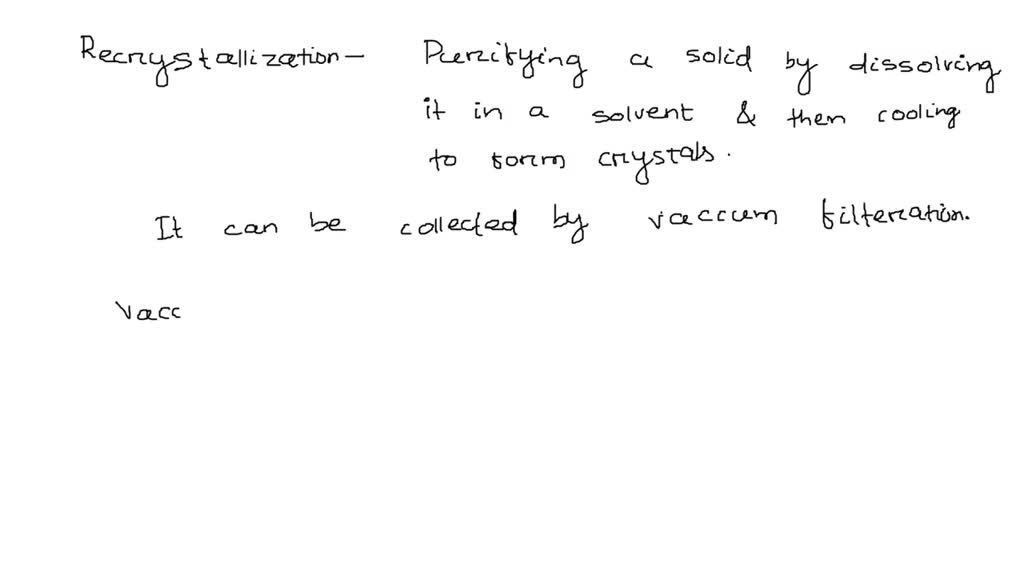 Recrystallization – Purifying a solid by dissolving
it in a solvent & then cooling
to form crystals.
It can be collected by vaccum filteration.
vacc